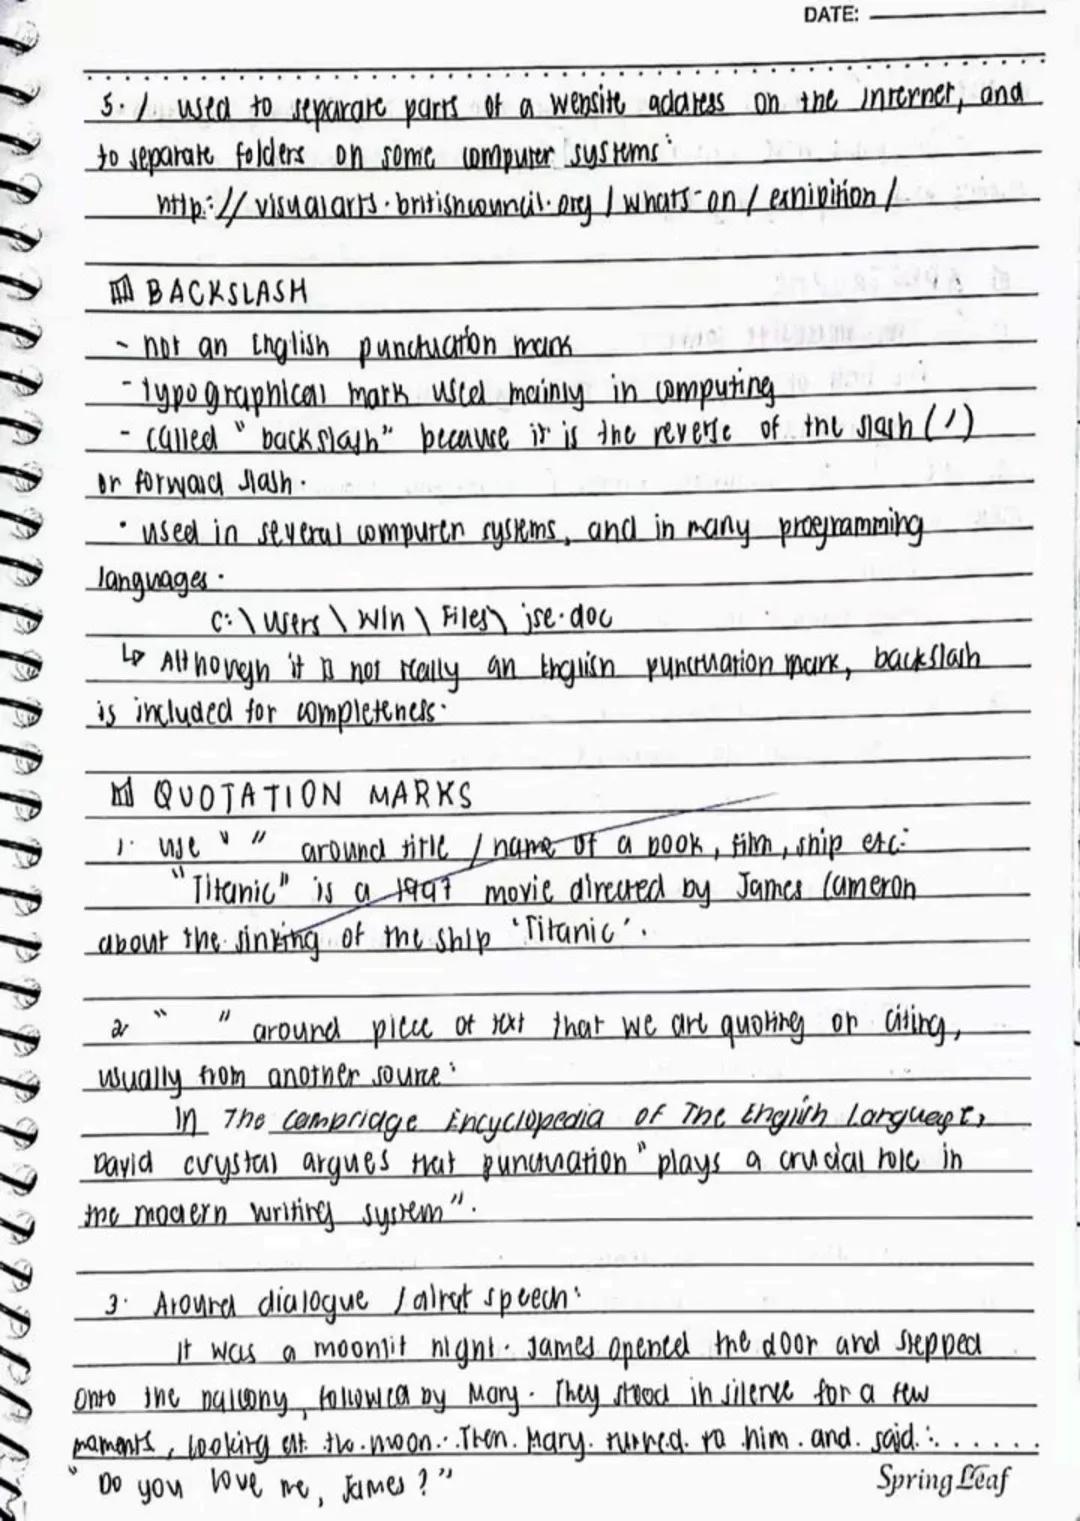 DATE:
5. / used to separate parts of a website address on the internet, and
to separate folders on some computer systems:
http://visualarts.britishcouncil.org/whats-on/exhibition/
BACKSLASH
- not an English punctuation mark
- typographical mark used mainly in computing
- called "backslash" because it is the reverse of the slash (/)
or forward slash.
• used in several computer systems, and in many programming
languages.
C:\Users\Win\Files\jse.doc
↳ Although it is not really an English punctuation mark, backslash
is included for completeness.
QUOTATION MARKS
1. use " " around title / name of a book, film, ship etc:
"Titanic" is a 1997 movie directed by James Cameron
about the sinking of the ship 'Titanic'.
2. " " around piece of text that we are quoting or citing,
usually from another source:
In The Cambridge Encyclopedia of The English Language,
David crystal argues that punctuation "plays a crucial role in
the modern writing system".
3. Around dialogue / direct speech:
It was a moonlit night. James opened the door and stepped
onto the balcony, followed by Mary. They stood in silence for a few
moments, looking at the moon. Then Mary turned to him and said:
"Do you love me, James?"
Spring Leaf